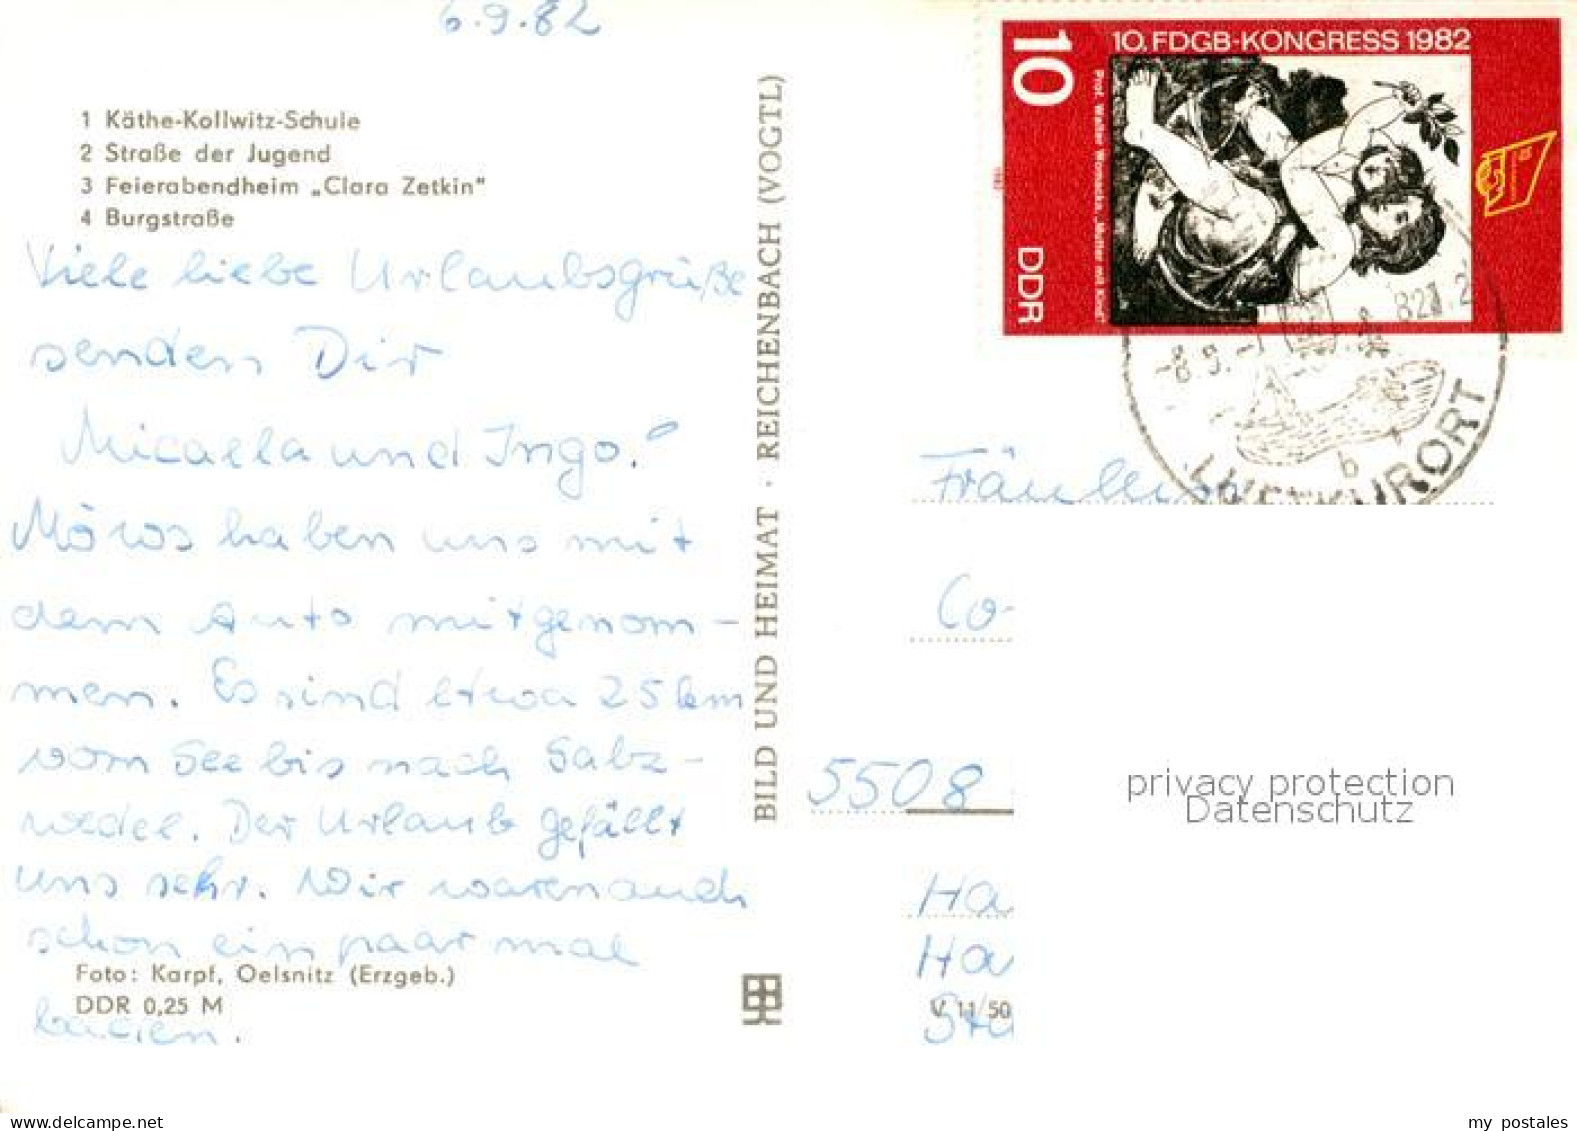 6.9.82
1 Käthe-Kollwitz-Schule
2 Straße der Jugend
3 Feierabendheim „Clara Zetkin"
4 Burgstraße
Viele liebe Urlaubsgrüße
senden Dir
Micaela und Ingo.
haben uns mit
dem Auto mitgenom-
men. Es sind etwa 25 km
vom See bis nach Salz-
wedel. Der Urlaub gefällt
uns sehr. Wir waren auch
schon ein paar mal
baden.
Foto: Karpf, Oelsnitz (Erzgeb.)
DDR 0,25 M
BILD UND HEIMAT · REICHENBACH (VOGTL)
V 11/50
10. FDGB-KONGRESS 1982
10
DDR
Prof. Walter Womacka, „Mutter mit Kind"
1982
LUFTKURORT
b
Fräulein
Co-
5508
Ha
Ha
Str
privacy protection
Datenschutz
my postales